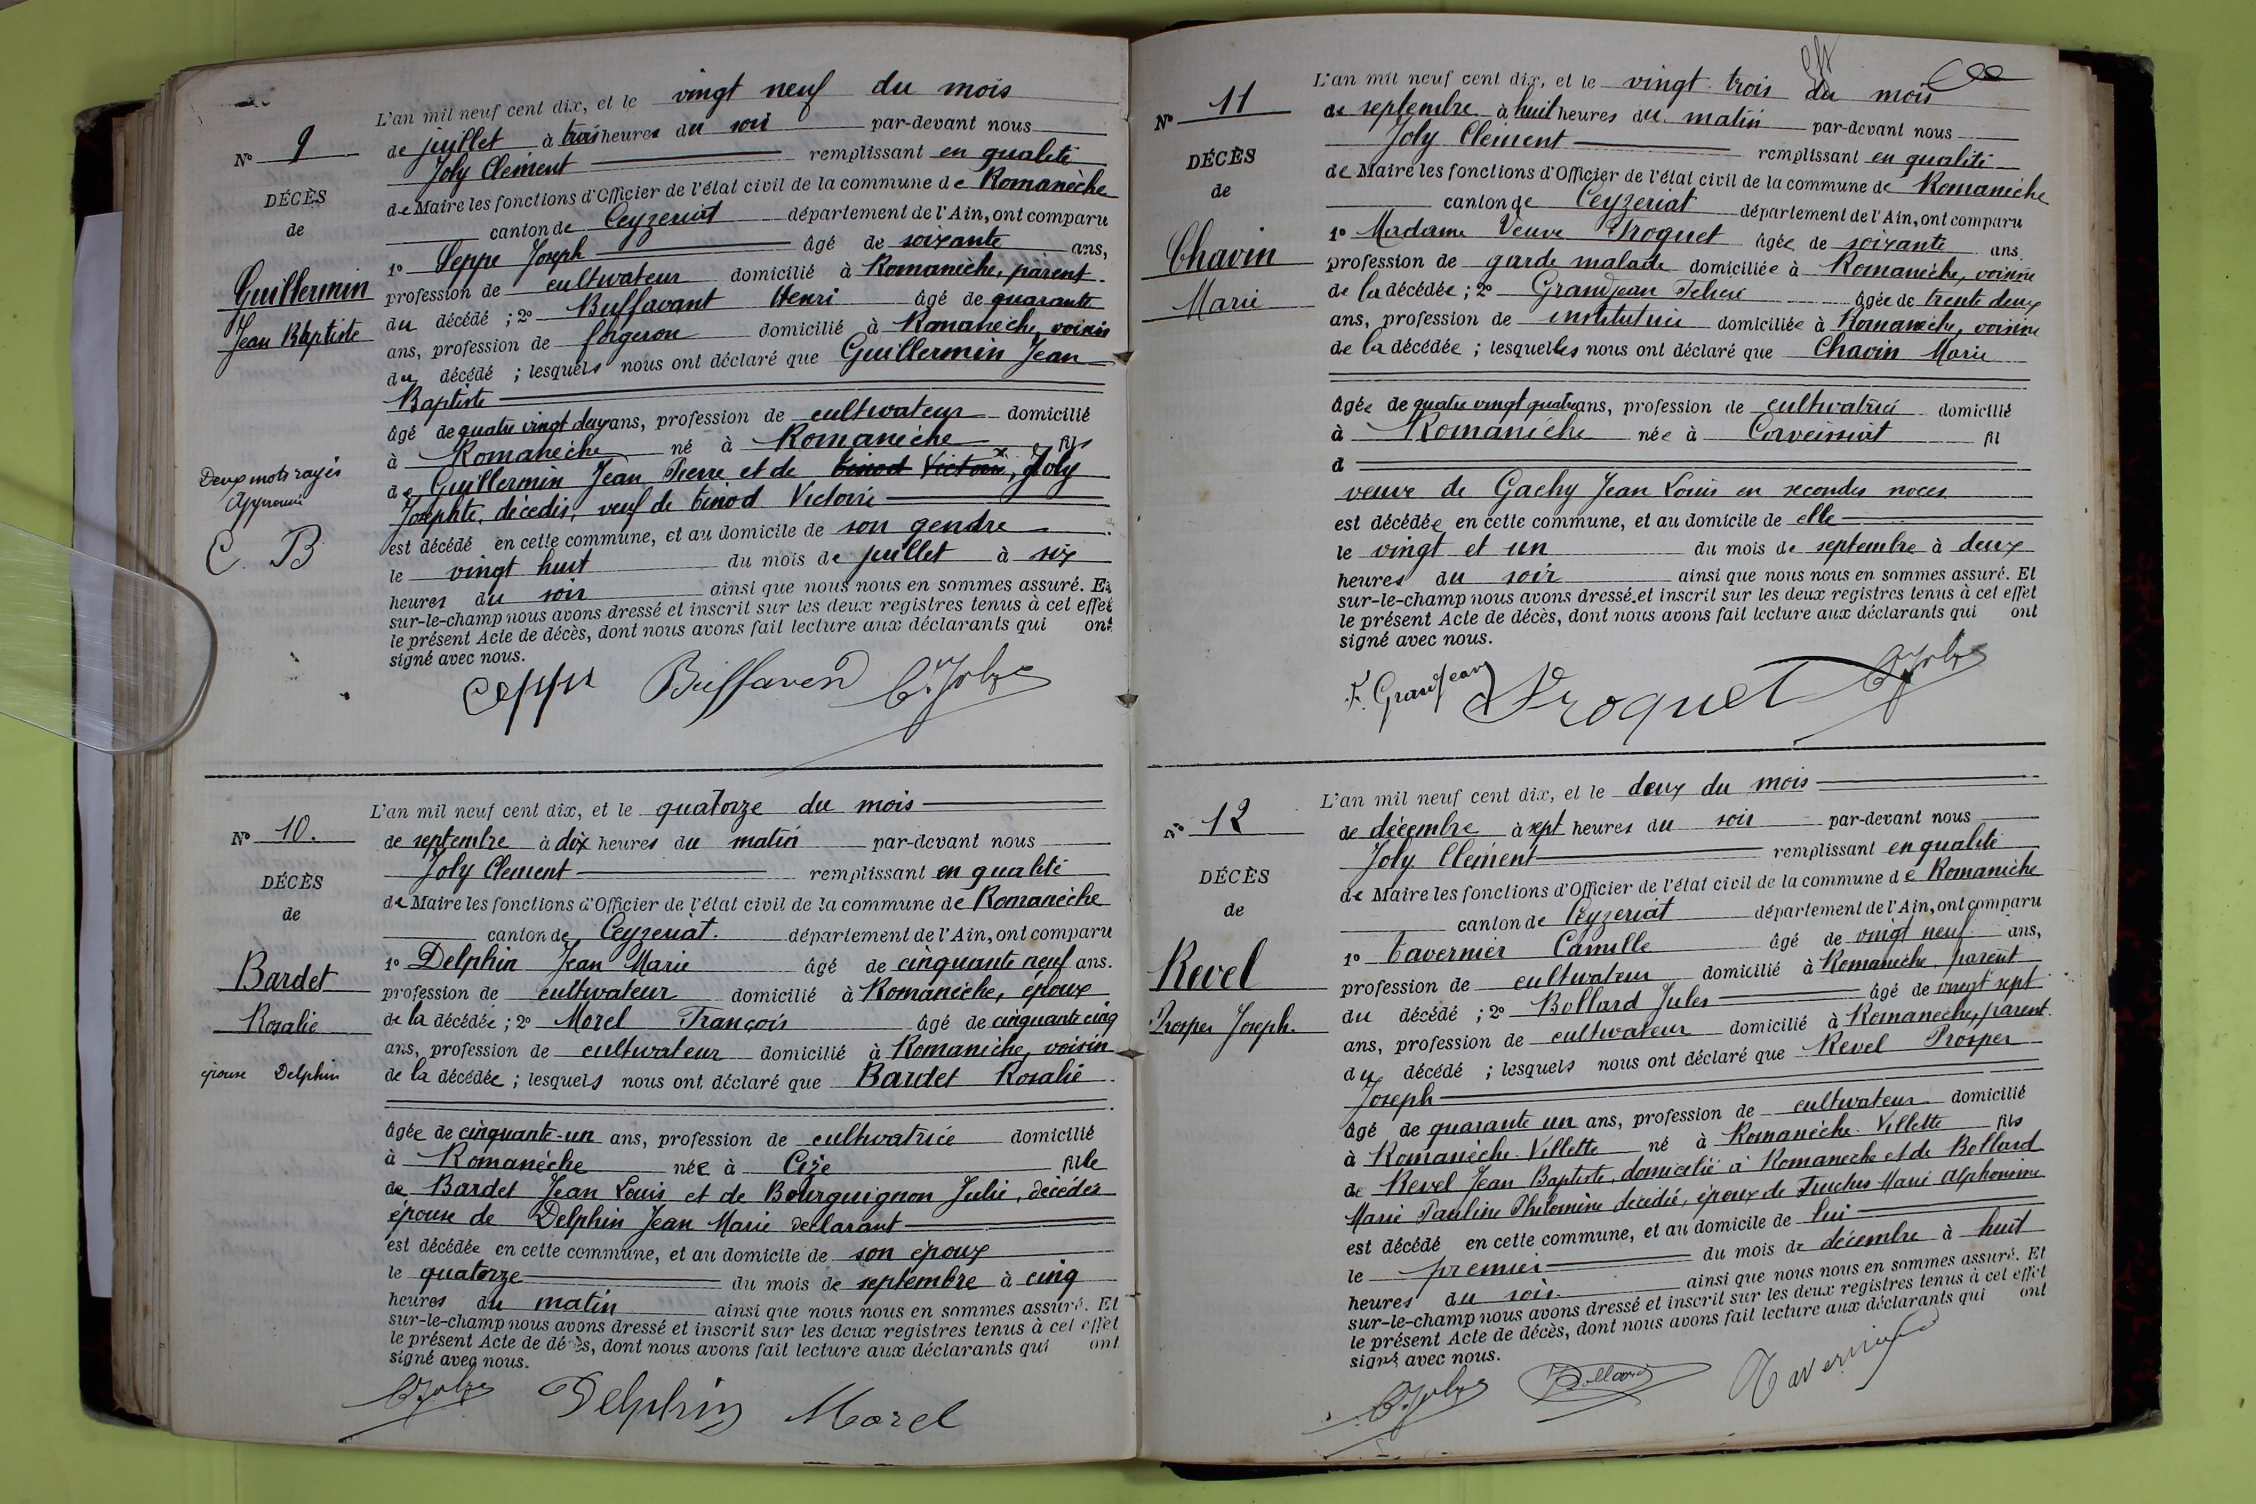 L'an mil neuf cent dix, et le vingt neuf du mois
de juillet à trois heures du soir par-devant nous
Joly Clément remplissant en qualité
de Maire les fonctions d'Officier de l'état civil de la commune de Romanèche
canton de Ceyzeriat département de l'Ain, ont comparu
1º Seppe Joseph âgé de soixante ans,
profession de cultivateur domicilié à Romanèche, parent
du décédé ; 2º Buffavant Henri âgé de quarante
ans, profession de forgeron domicilié à Romanèche, voisin
du décédé ; lesquels nous ont déclaré que Guillermin Jean
Baptiste
âgé de quatre vingt deux ans, profession de cultivateur domicilié
à Romanèche né à Romanèche fils
de Guillermin Jean Pierre et de Tinod Victoire, Joly
Josephte, décédés, veuf de Tinod Victoire
est décédé en cette commune, et au domicile de son gendre
le vingt huit du mois de juillet à six
heures du soir ainsi que nous nous en sommes assuré. Et
sur-le-champ nous avons dressé et inscrit sur les deux registres tenus à cet effet
le présent Acte de décès, dont nous avons fait lecture aux déclarants qui ont
signé avec nous.
Nº 9
DÉCÈS
de
Guillermin
Jean Baptiste
Deux mots rayés
Approuvé
C. B
Buffavend C. Joly
L'an mil neuf cent dix, et le quatorze du mois
de septembre à dix heures du matin par-devant nous
Joly Clément remplissant en qualité
de Maire les fonctions d'Officier de l'état civil de la commune de Romanèche
canton de Ceyzeriat. département de l'Ain, ont comparu
1º Delphin Jean Marie âgé de cinquante neuf ans.
profession de cultivateur domicilié à Romanèche, époux
de la décédée ; 2º Morel François âgé de cinquante cinq
ans, profession de cultivateur domicilié à Romanèche, voisin
de la décédée ; lesquels nous ont déclaré que Bardet Rosalie
âgée de cinquante-un ans, profession de cultivatrice domicilié
à Romanèche née à Cize fille
de Bardet Jean Louis et de Bourguignon Julie, décédés
épouse de Delphin Jean Marie déclarant
est décédée en cette commune, et au domicile de son époux
le quatorze du mois de septembre à cinq
heures du matin ainsi que nous nous en sommes assuré. Et
sur-le-champ nous avons dressé et inscrit sur les deux registres tenus à cet effet
le présent Acte de décès, dont nous avons fait lecture aux déclarants qui ont
signé avec nous.
Nº 10.
DÉCÈS
de
Bardet
Rosalie
épouse Delphin
C. Joly Delphin Morel
L'an mil neuf cent dix, et le vingt trois du mois
de septembre à huit heures du matin par-devant nous
Joly Clément remplissant en qualité
de Maire les fonctions d'Officier de l'état civil de la commune de Romanèche
canton de Ceyzeriat département de l'Ain, ont comparu
1º Madame Veuve Troquet âgée de soixante ans.
profession de garde malade domiciliée à Romanèche, voisine
de la décédée ; 2º Grandjean âgée de trente deux
ans, profession de institutrice domiciliée à Romanèche, voisine
de la décédée ; lesquelles nous ont déclaré que Chavin Marie
âgée de quatre vingt quatre ans, profession de cultivatrice domicilié
à Romanèche née à Corveissiat fil
d
veuve de Gachy Jean Louis en secondes noces
est décédée en cette commune, et au domicile de elle
le vingt et un du mois de septembre à deux
heures du soir ainsi que nous nous en sommes assuré. Et
sur-le-champ nous avons dressé et inscrit sur les deux registres tenus à cet effet
le présent Acte de décès, dont nous avons fait lecture aux déclarants qui ont
signé avec nous.
Nº 11
DÉCÈS
de
Chavin
Marie
F. Grandjean Troquet C. Joly
L'an mil neuf cent dix, et le deux du mois
de décembre à sept heures du soir par-devant nous
Joly Clément remplissant en qualité
de Maire les fonctions d'Officier de l'état civil de la commune de Romanèche
canton de Ceyzeriat département de l'Ain, ont comparu
1º Tavernier Camille âgé de vingt neuf ans,
profession de cultivateur domicilié à Romanèche, parent
du décédé ; 2º Bollard Jules âgé de vingt sept
ans, profession de cultivateur domicilié à Romanèche, parent
du décédé ; lesquels nous ont déclaré que Revel Prosper
Joseph
âgé de quarante un ans, profession de cultivateur domicilié
à Romanèche Villette né à Romanèche Villette fils
de Revel Jean Baptiste, domicilié à Romanèche et de Bollard
Marie Pauline Philomène décédée, époux de Marie Alphonsine
est décédé en cette commune, et au domicile de lui
le premier du mois de décembre à huit
heures du soir. ainsi que nous nous en sommes assuré. Et
sur-le-champ nous avons dressé et inscrit sur les deux registres tenus à cet effet
le présent Acte de décès, dont nous avons fait lecture aux déclarants qui ont
signé avec nous.
Nº 12
DÉCÈS
de
Revel
Prosper Joseph.
C. Joly Bollard Tavernier